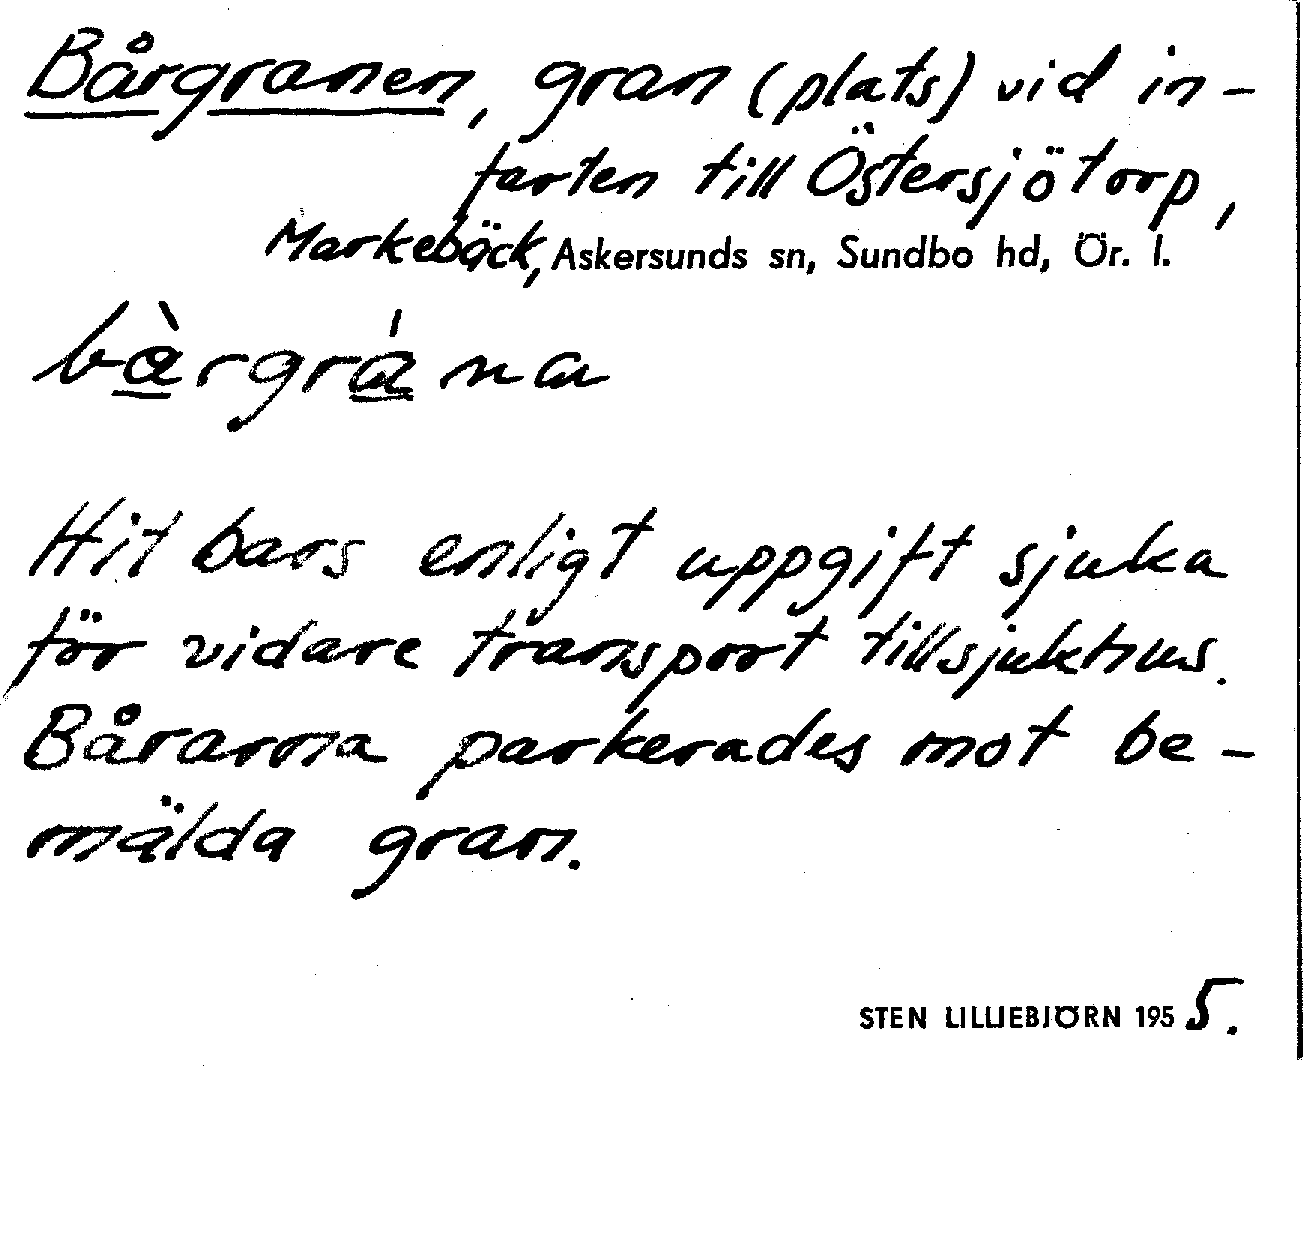 Bårgranen, gran (plats) vid in-
farten till Östersjötorp,
Markebäck, Askersunds sn, Sundbo hd, Ör. l.
bàrgrána
Hit bars enligt uppgift sjuka
för vidare transport till sjukhus.
Bårarna parkerades mot be-
mälda gran.
STEN LILLIEBJÖRN 1955.